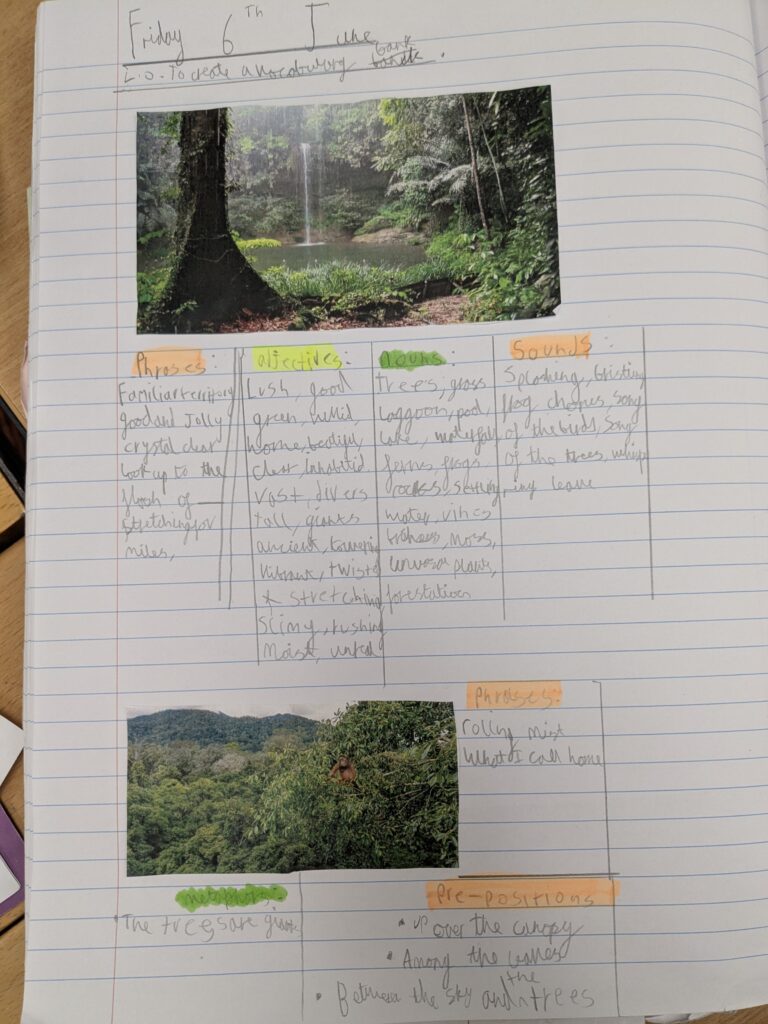 Friday 6th June
L.O. To create a vocabulary bank
Phrases:
Familiar territory
good and Jolly
crystal clear
look up to the
of
Stretching for
miles,
adjectives:
Lush, good
green, humid
home, beatiful,
clear, inhabitid
vast, divers
tall, giants
ancient, towering
vibrant, twisted
* stretching
Slimy, rushing
Moist,
nouns:
trees, grass
laggoon, pod,
lake, waterfall
ferns, frogs
rocks, setting,
water, vines
moss,
forestation
Sounds:
Splashing,
frog, song
of the birds, song
of the trees, whisp
ing leave
Phrases:
rolling mist
What I call home
metaphors:
• The trees are giants
Pre-positions
• up over the canopy
• Among the
• Between the sky and the trees